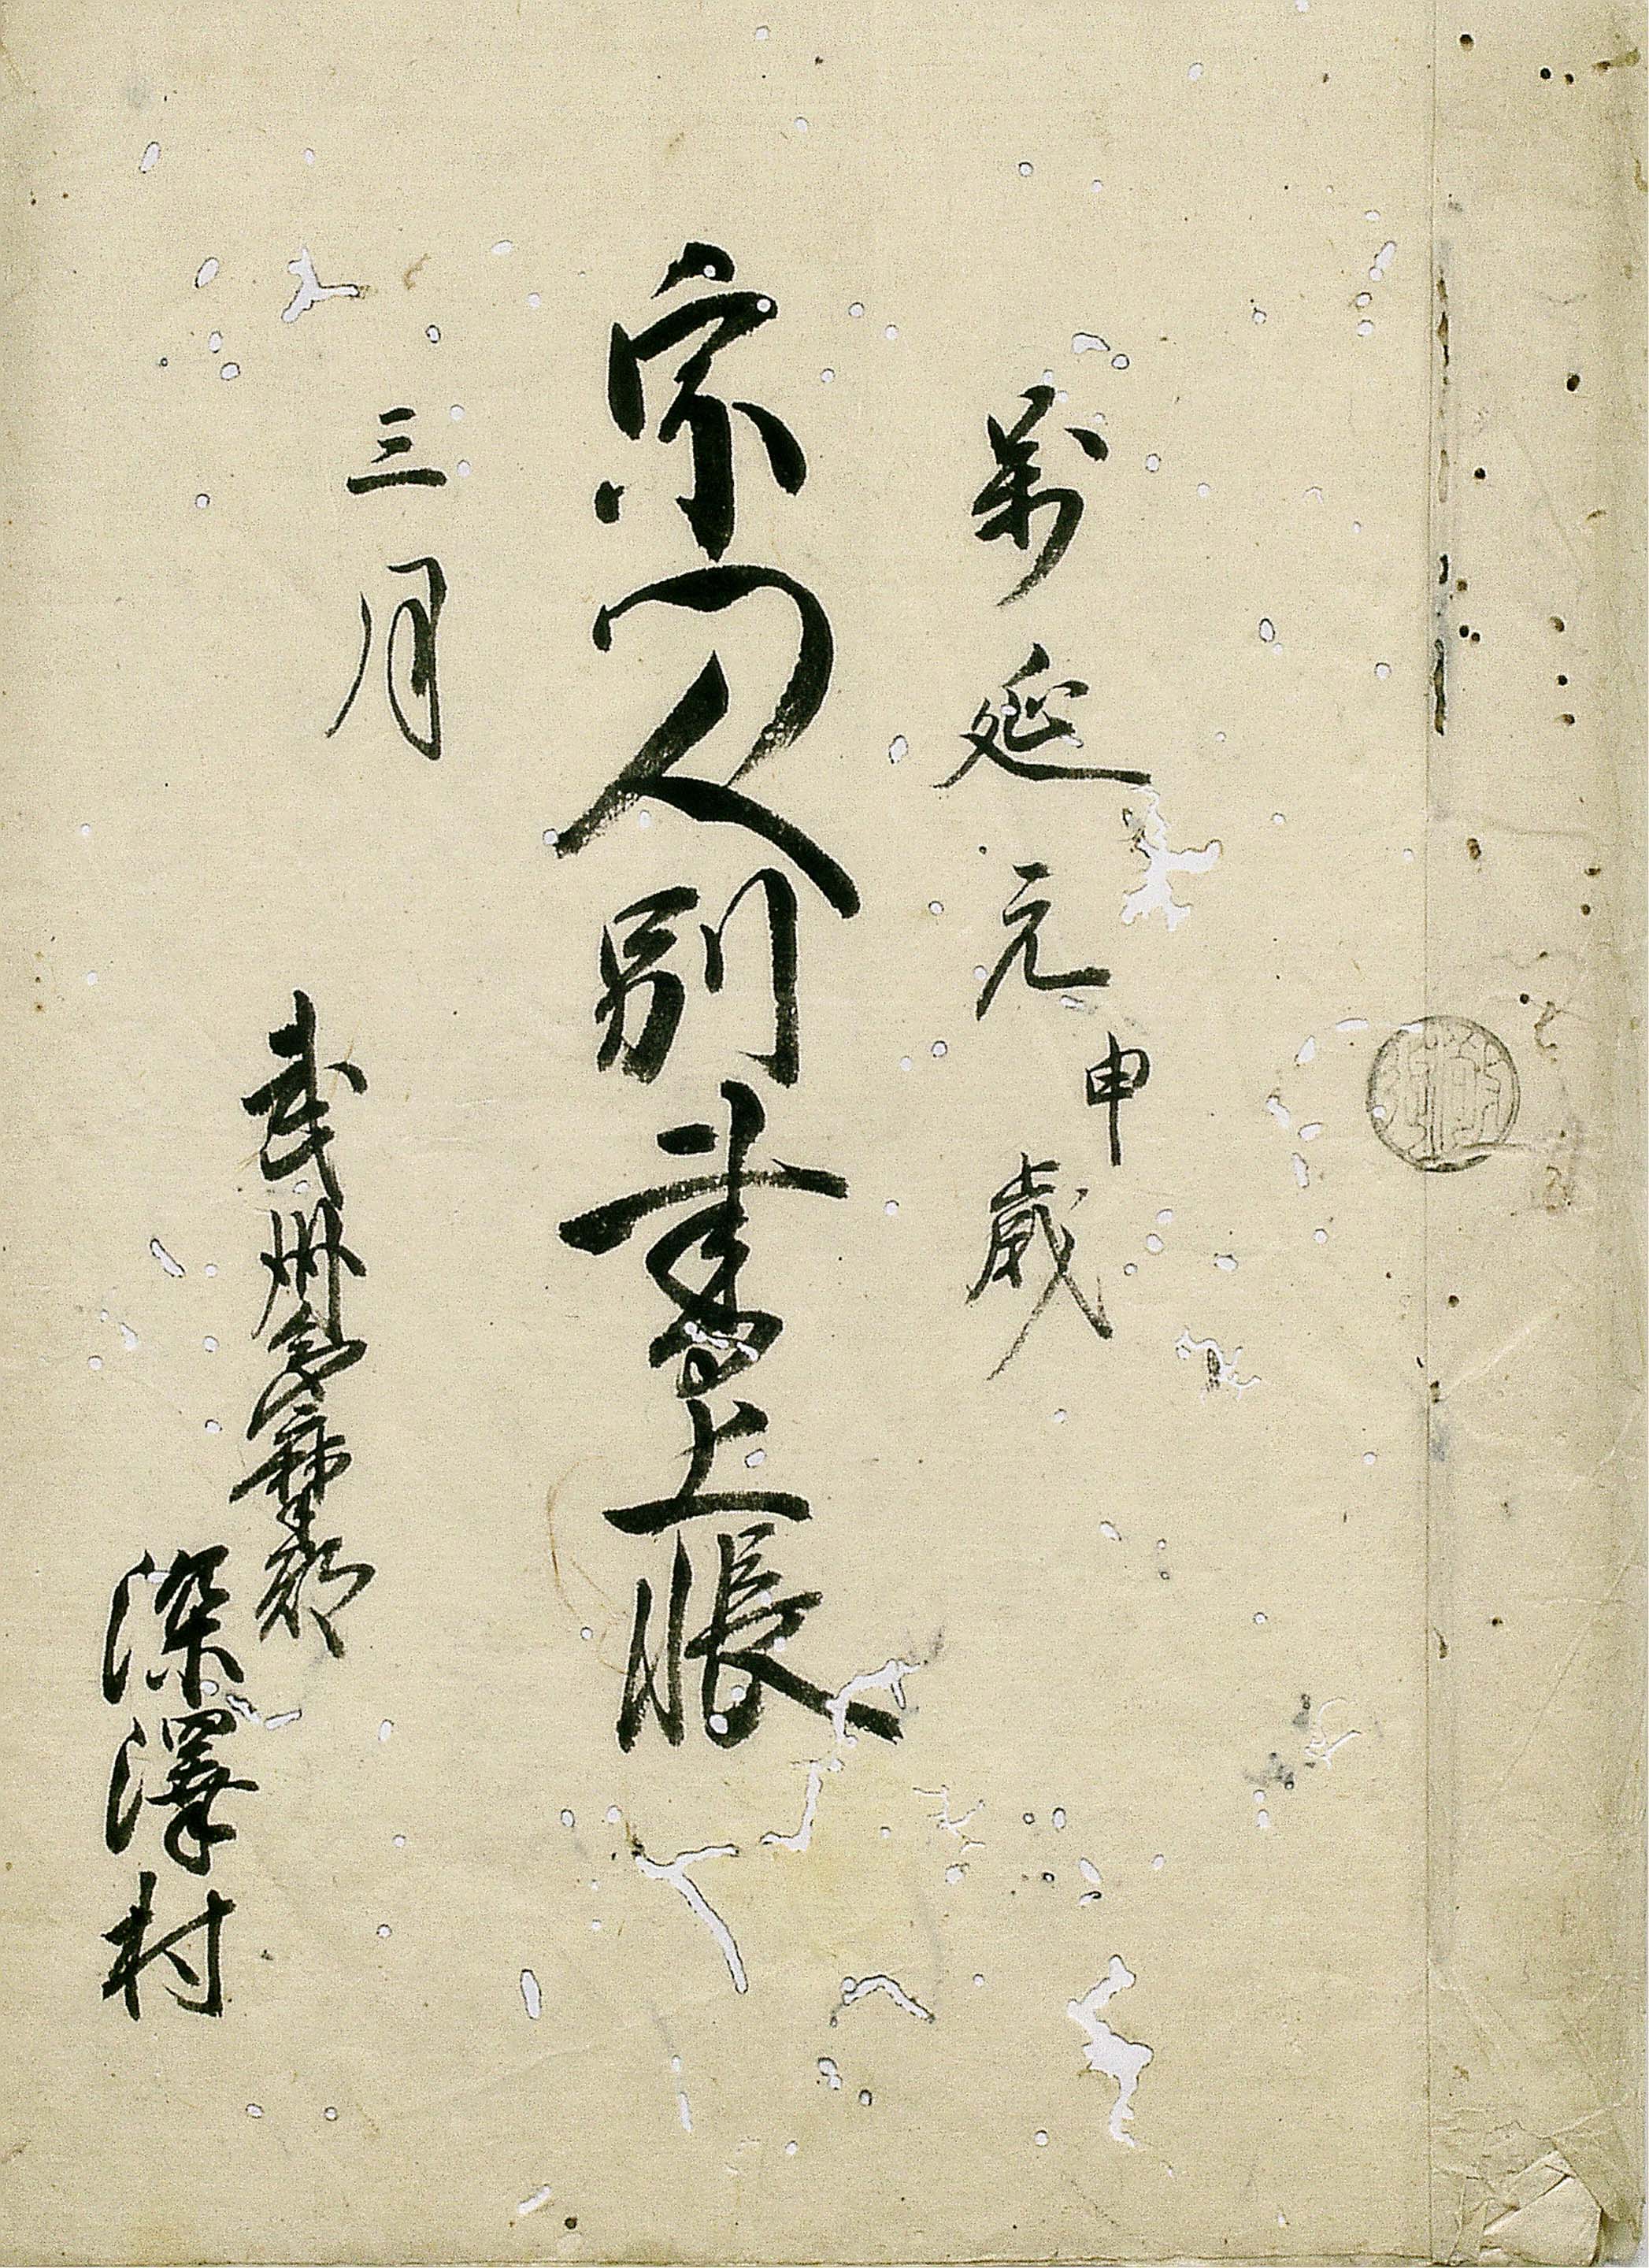 萬延元申歳
宗門人別書上帳
三月
武州多摩郡
深澤村